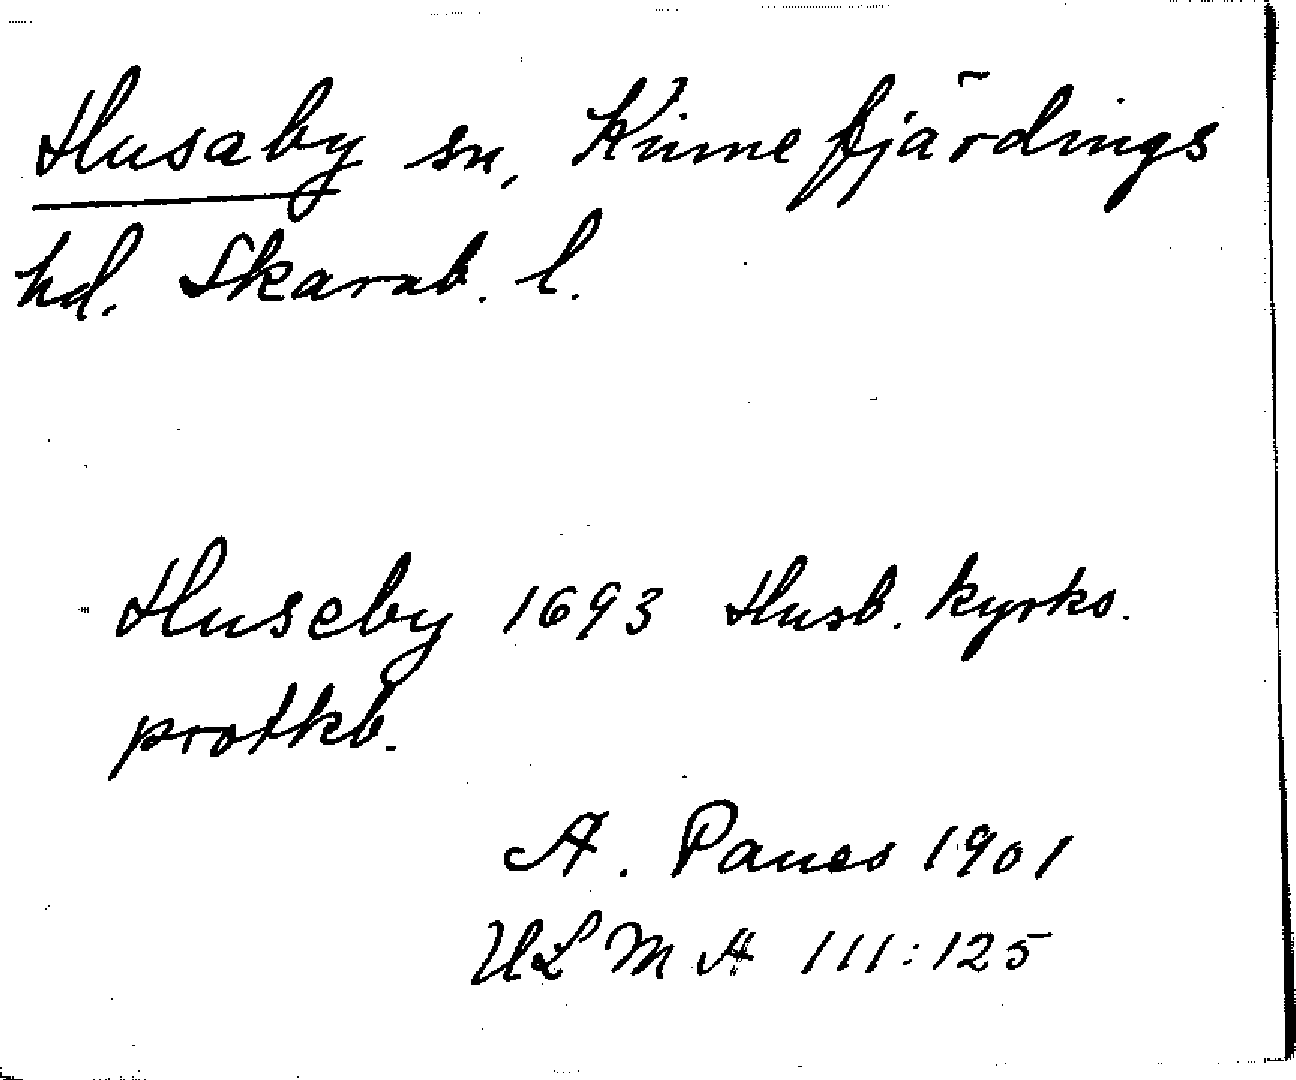 Husaby sn, Kinnefjärdings
hd. Skarab. l.
Huseby 1693 Husb. kyrko.
protkb.
A. Panes 1901
ULMA 111:125